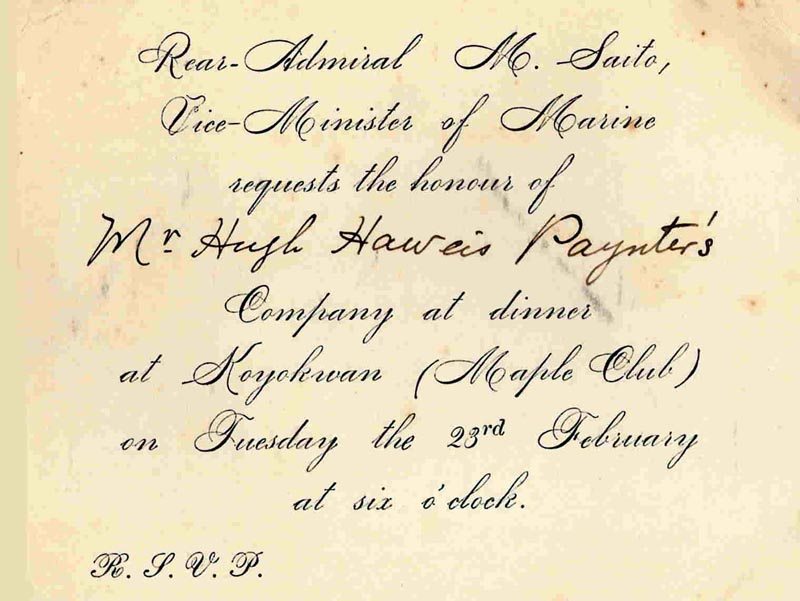 Rear-Admiral M. Saito,
Vice-Minister of Marine
requests the honour of
Mr Hugh Haweis Paynter's
Company at dinner
at Koyokwan (Maple Club)
on Tuesday the 23rd February
at six o'clock.
R. S. V. P.